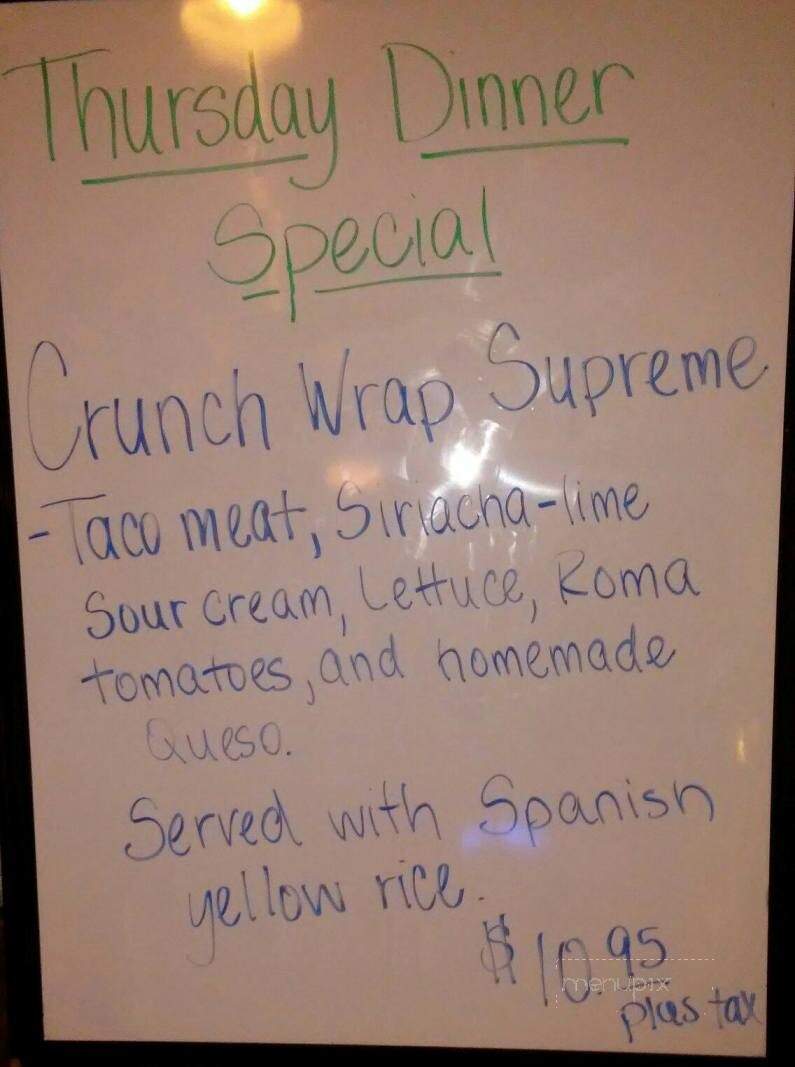 Thursday Dinner
Special
Crunch Wrap Supreme
-Taco meat, Siriacha-lime
Sour cream, Lettuce, Roma
tomatoes, and homemade
Queso.
Served with Spanish
yellow rice.
$10.95
menupix
plus tax